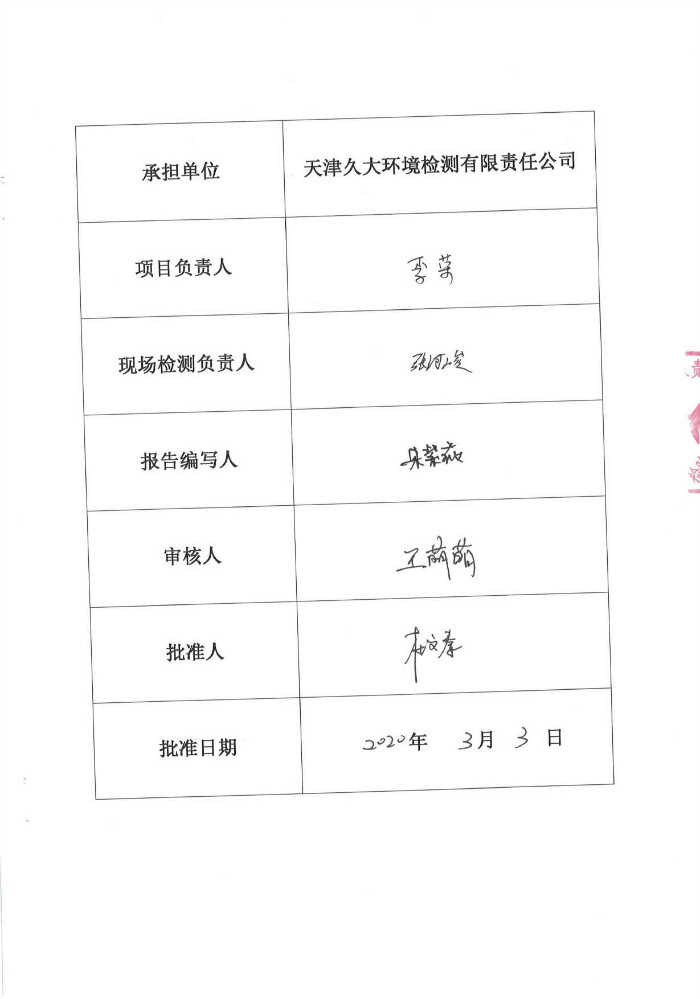 承担单位 天津久大环境检测有限责任公司
项目负责人 李荣
现场检测负责人
报告编写人
审核人 王萌萌
批准人
批准日期 2020年 3月 3 日
责